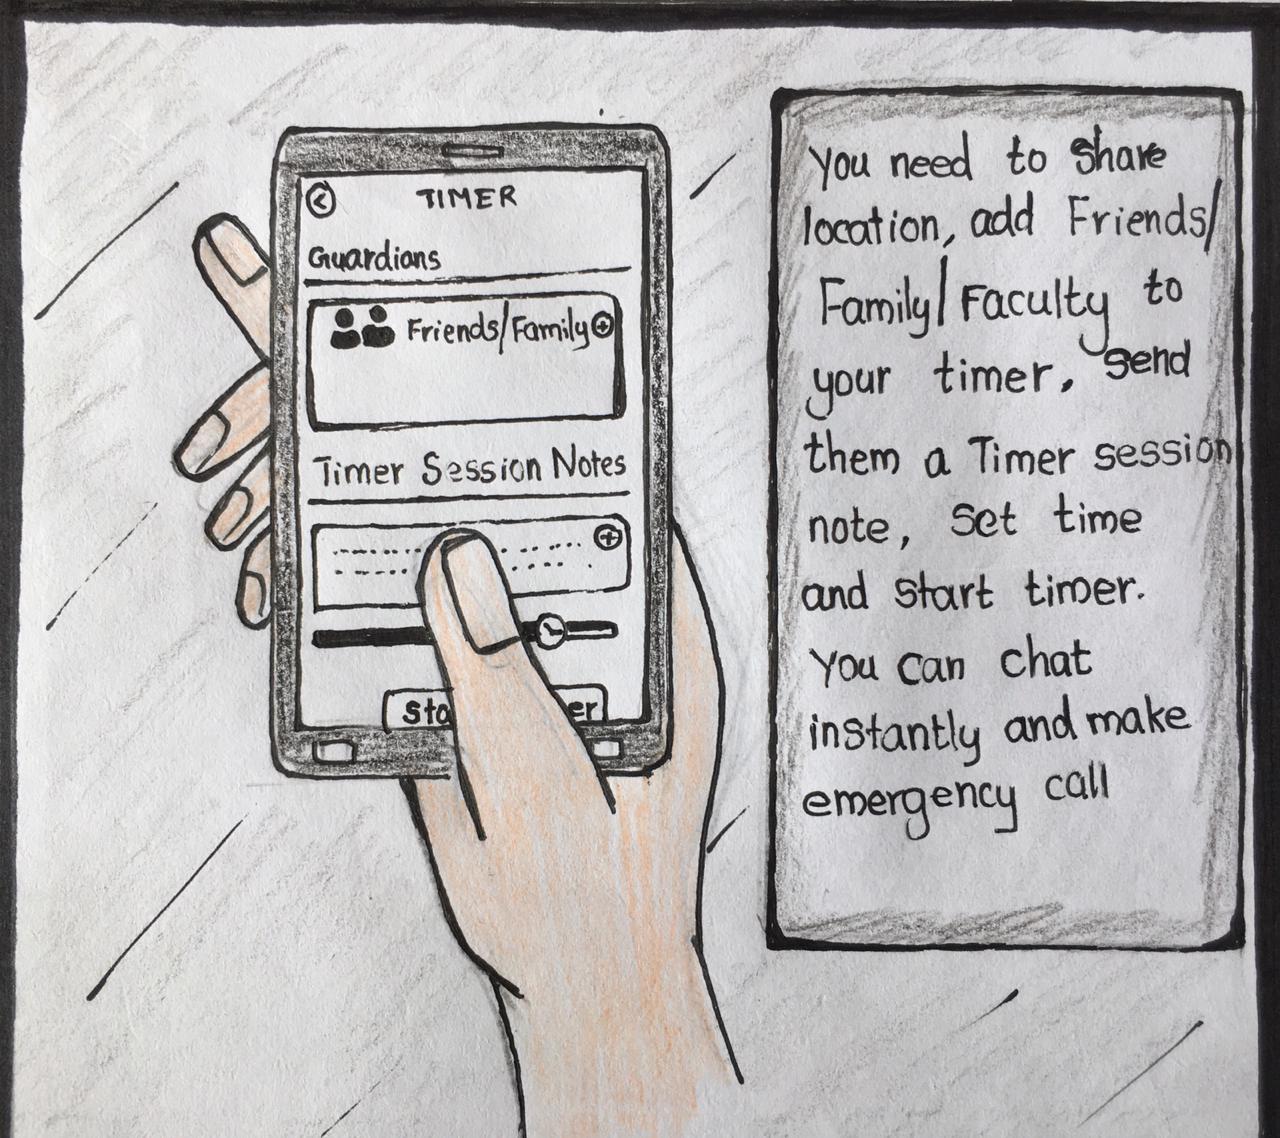 TIMER
Guardians
Friends/Family
Timer Session Notes
Sta er
You need to share
location, add Friends/
Family/Faculty to
your timer, send
them a Timer session
note, set time
and start timer.
You can chat
instantly and make
emergency call